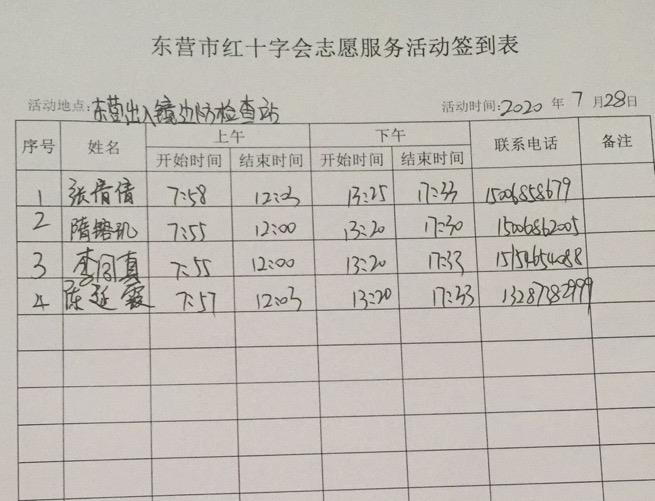 东营市红十字会志愿服务活动签到表
活动地点:东营出入镜边防检查站 活动时间:2020年7月28日
序号 姓名 上午 下午 联系电话 备注
开始时间 结束时间 开始时间 结束时间
1 张倩倩 7:58 12:03 13:25 17:33 15006858679
2 隋 7:55 12:00 13:20 17:30 15006862005
3 李同真 7:55 12:00 13:20 17:33 15154654088
4 陈延霞 7:57 12:03 13:20 17:33 13287382999